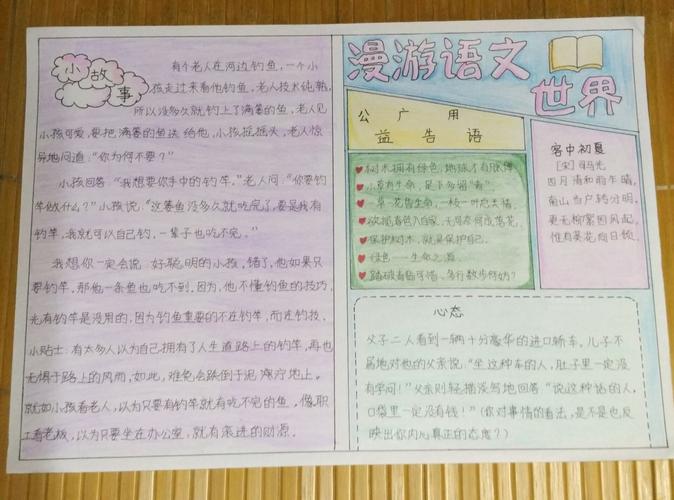 小故事
有个老人在河边钓鱼，一个小
孩走过来看他钓鱼，老人技术纯熟，
所以没多久就钓上了满篓的鱼，老人见
小孩可爱，要把满篓的鱼送给他，小孩摇摇头，老人惊
异地问道：“你为何不要？”
小孩回答：“我想要你手中的钓竿。”老人问：“你要钓
竿做什么？”小孩说：“这篓鱼没多久就吃完了，要是我有
钓竿，我就可以自己钓，一辈子也吃不完。”
我想你一定会说：好聪明的小孩，错了，他如果只
要钓竿，那他一条鱼也吃不到。因为，他不懂钓鱼的技巧，
光有钓竿是没用的，因为钓鱼重要的不在钓竿，而在钓技，
小贴士：有太多人以为自己拥有了人生道路上的钓竿，再也
无惧于路上的风雨，如此，难免会跌倒于泥泞地上。
就如小孩看老人，以为只要有钓竿就有吃不完的鱼，像职
工看老板，以为只要坐在办公室，就有滚进的财源。
漫游语文
世界
公广用
益告语
树木拥有绿色，地球才有脉搏
小草有生命，足下多留“青”
一草一花皆生命，一枝一叶总关情
欲揽春色入自家，无可奈何成落花
保护树木，就是保护自己。
绿色——生命之源
踏破青毡可惜，多行数步何妨？
客中初夏
[宋]司马光
四月清和雨乍晴，
南山当户转分明。
更无柳絮因风起，
惟有葵花向日倾。
心态
父子二人看到一辆十分豪华的进口轿车。儿子不
屑地对他的父亲说：“坐这种车的人，肚子里一定没
有学问！”父亲则轻描淡写地回答：“说这种话的人，
口袋里一定没有钱！”（你对事情的看法，是不是也反
映出你内心真正的态度？）